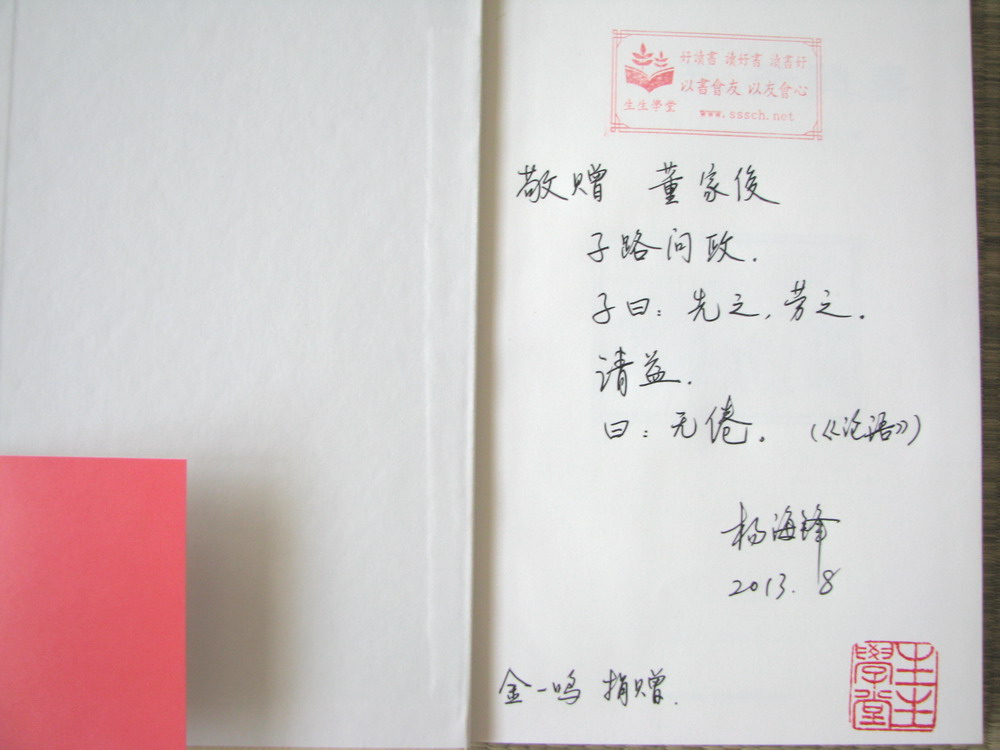 好讀書 讀好書 讀書好
以書會友 以友會心
生生學堂
www.sssch.net
敬赠 董家俊
子路问政.
子曰：先之，劳之.
请益.
曰：无倦。（《论语》）
杨海锋
2013. 8
金一鸣 捐赠.
生生學堂